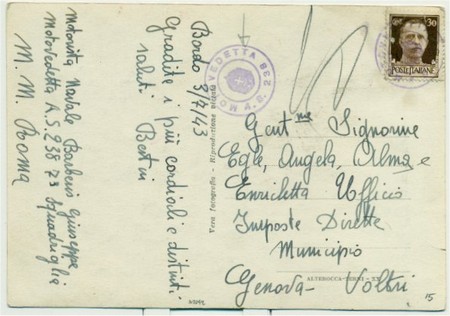 Bordo 3/7/43
Gradite i più cordiali e distinti
saluti Bertin
Motorista Navale Barberis Giuseppe
Motovedetta A.S. 238 7ª Squadriglia
M. M. Roma
Vera Fotografia - Riproduzione vietata
MOTOVEDETTA A.S. 238
30
POSTE ITALIANE
Gent.me Signorine
Egle, Angela, Alma e
Enrichetta Ufficio
Imposte Dirette
Municipio
Genova - Voltri
15